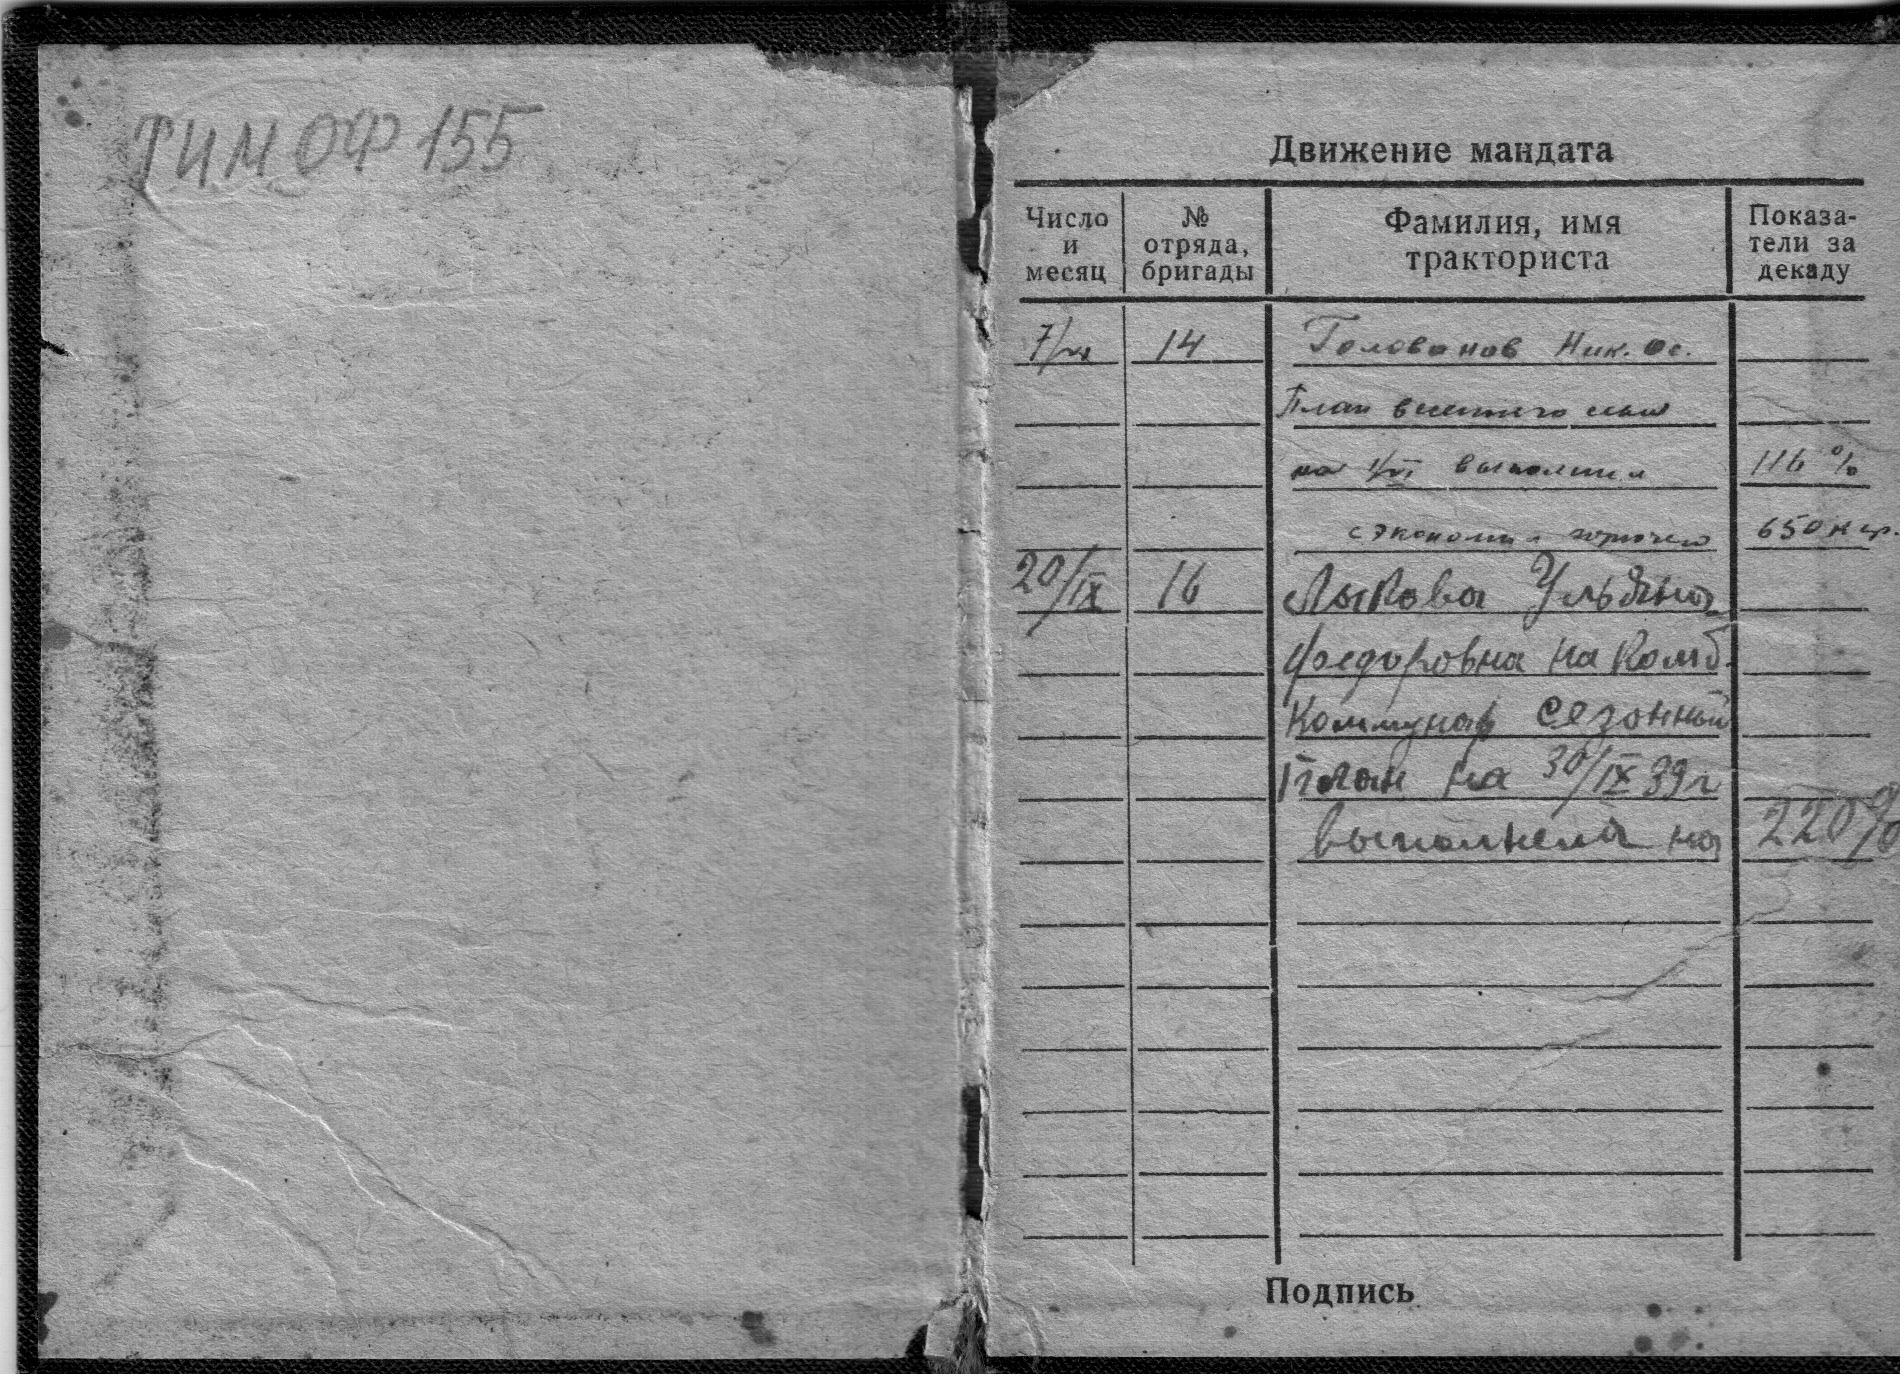 ТИМОФ 155
Движение мандата
Число и месяц
№ отряда, бригады
Фамилия, имя тракториста
Показа-
тели за
декаду
7/VI 14 Голованов Ник. Ос.
План весеннего сева
на 1/VI выполнил 116 %
с экономи горючего 650 кгр.
20/IX 16 Лыкова Ульяна
Федоровна на Комб.
Коммунар сезонный
План на 30/IX 39 г
выполнела на 220%
Подпись